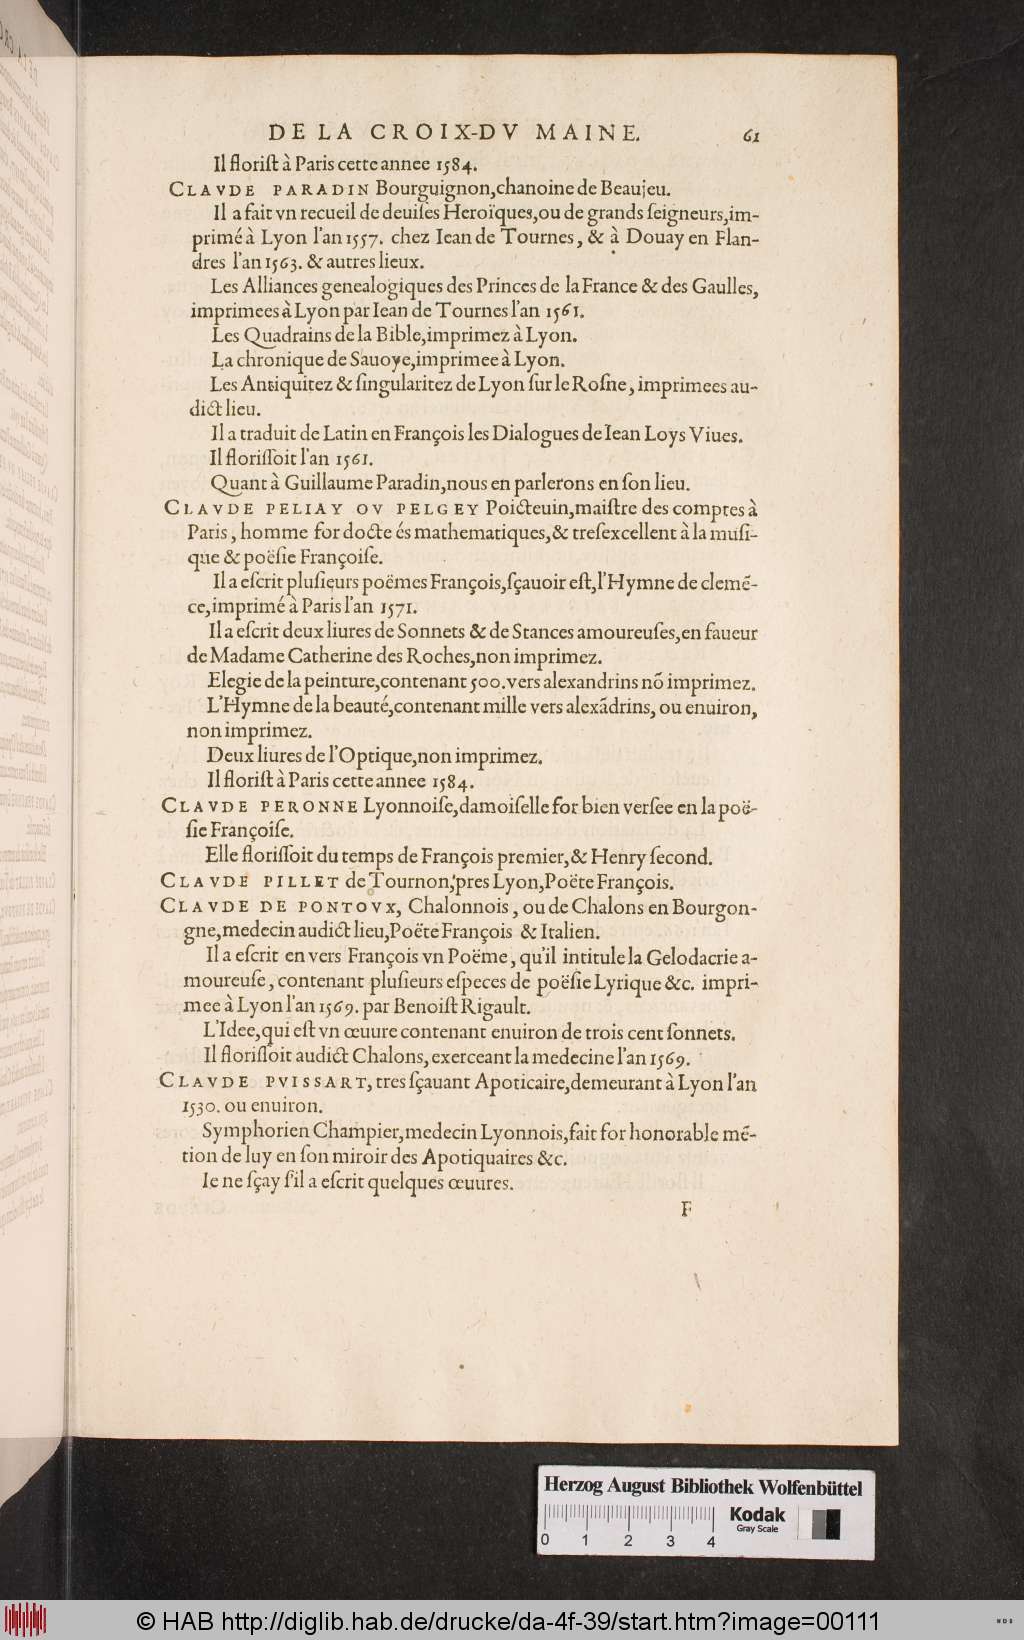 DE LA CROIX-DV MAINE. 61
Il floriſt à Paris cette annee 1584.
CLAVDE PARADIN Bourguignon, chanoine de Beaujeu.
Il a fait vn recueil de deuiſes Heroïques, ou de grands ſeigneurs, im-
primé à Lyon l'an 1557. chez Iean de Tournes, & à Douay en Flan-
dres l'an 1563. & autres lieux.
Les Alliances genealogiques des Princes de la France & des Gaulles,
imprimees à Lyon par Iean de Tournes l'an 1561.
Les Quadrains de la Bible, imprimez à Lyon.
La chronique de Sauoye, imprimee à Lyon.
Les Antiquitez & ſingularitez de Lyon ſur le Roſne, imprimees au-
dict lieu.
Il a traduit de Latin en François les Dialogues de Iean Loys Viues.
Il floriſſoit l'an 1561.
Quant à Guillaume Paradin, nous en parlerons en ſon lieu.
CLAVDE PELIAY OV PELGEY Poicteuin, maiſtre des comptes à
Paris, homme for docte és mathematiques, & treſexcellent à la muſi-
que & poëſie Françoiſe.
Il a eſcrit pluſieurs poëmes François, ſçauoir eſt, l'Hymne de clemẽ-
ce, imprimé à Paris l'an 1571.
Il a eſcrit deux liures de Sonnets & de Stances amoureuſes, en faueur
de Madame Catherine des Roches, non imprimez.
Elegie de la peinture, contenant 500. vers alexandrins nõ imprimez.
L'Hymne de la beauté, contenant mille vers alexãdrins, ou enuiron,
non imprimez.
Deux liures de l'Optique, non imprimez.
Il floriſt à Paris cette annee 1584.
CLAVDE PERONNE Lyonnoiſe, damoiſelle for bien verſée en la poë-
ſie Françoiſe.
Elle floriſſoit du temps de François premier, & Henry ſecond.
CLAVDE PILLET de Tournon, pres Lyon, Poëte François.
CLAVDE DE PONTOVX, Chalonnois, ou de Chalons en Bourgon-
gne, medecin audict lieu, Poëte François & Italien.
Il a eſcrit en vers François vn Poëme, qu'il intitule la Gelodacrie a-
moureuſe, contenant pluſieurs eſpeces de poëſie Lyrique &c. impri-
mee à Lyon l'an 1569. par Benoiſt Rigault.
L'Idee, qui eſt vn œuure contenant enuiron de trois cent ſonnets.
Il floriſſoit audict Chalons, exerceant la medecine l'an 1569.
CLAVDE PVISSART, tres ſçauant Apoticaire, demeurant à Lyon l'an
1530. ou enuiron.
Symphorien Champier, medecin Lyonnois, fait for honorable mẽ-
tion de luy en ſon miroir des Apotiquaires &c.
Ie ne ſçay ſ'il a eſcrit quelques œuures.
F
Herzog August Bibliothek Wolfenbüttel
0 1 2 3 4
Kodak
Gray Scale
© HAB http://diglib.hab.de/drucke/da-4f-39/start.htm?image=00111